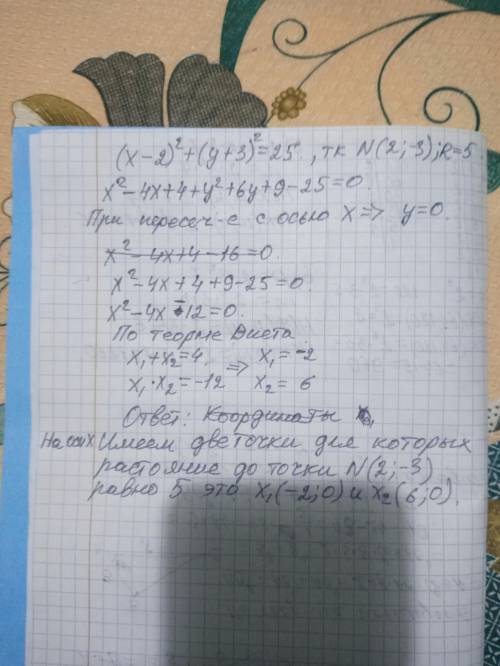 (x-2)²+(y+3)²=25, тк N(2;-3); R=5.
x²-4x+4+y²+6y+9-25=0.
При пересеч-е с осью x => y=0.
x²-4x+4-16=0.
x²-4x+4+9-25=0.
x²-4x-12=0.
По теорме Виета
x₁+x₂=4 => x₁=-2
x₁·x₂=-12 x₂=6
Ответ: Координаты
На оси x Имеем две точки для которых
растояние до точки N(2;-3)
равно 5 это x₁(-2;0) и x₂(6;0).